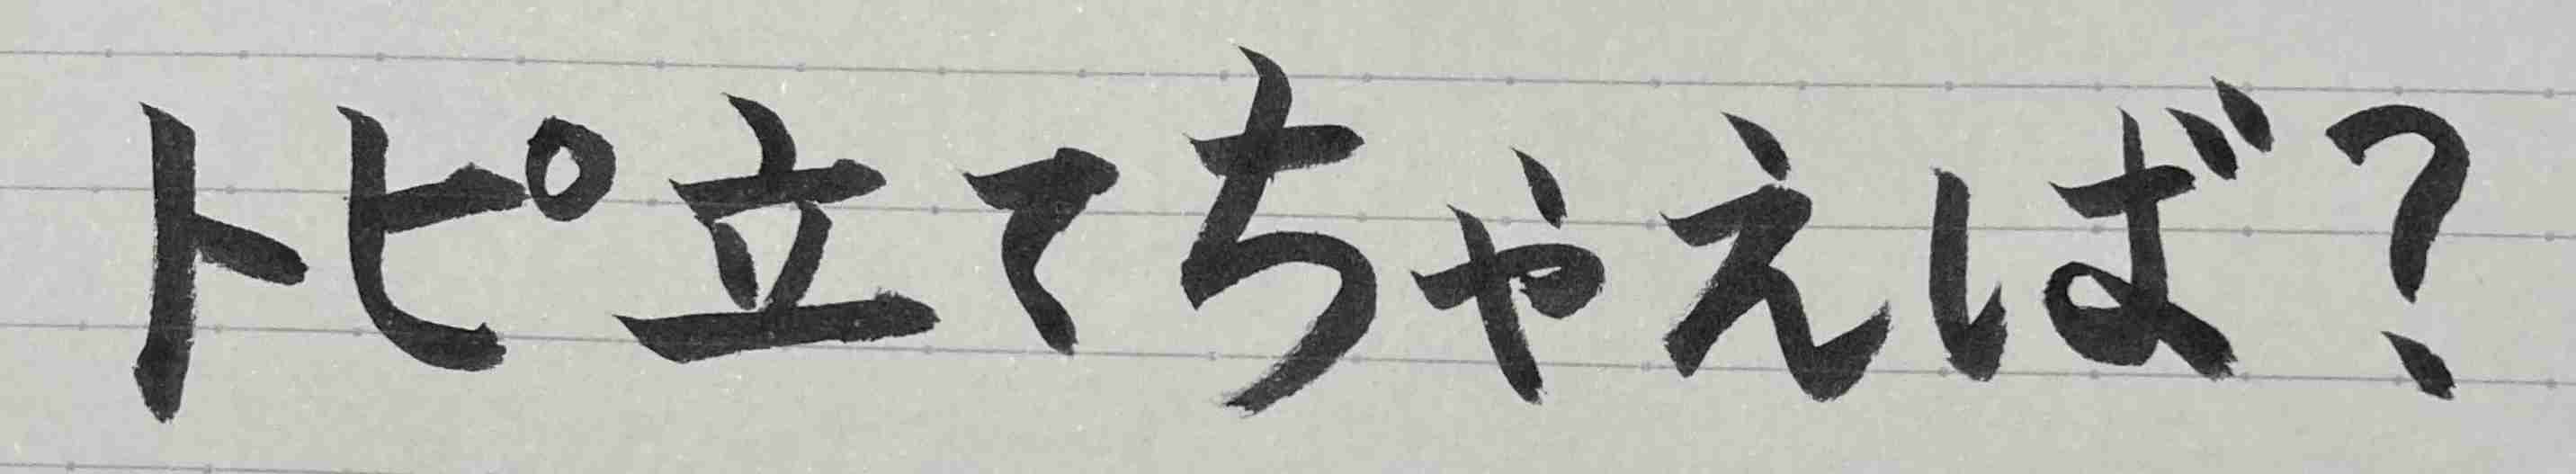 トピ立てちゃえば?